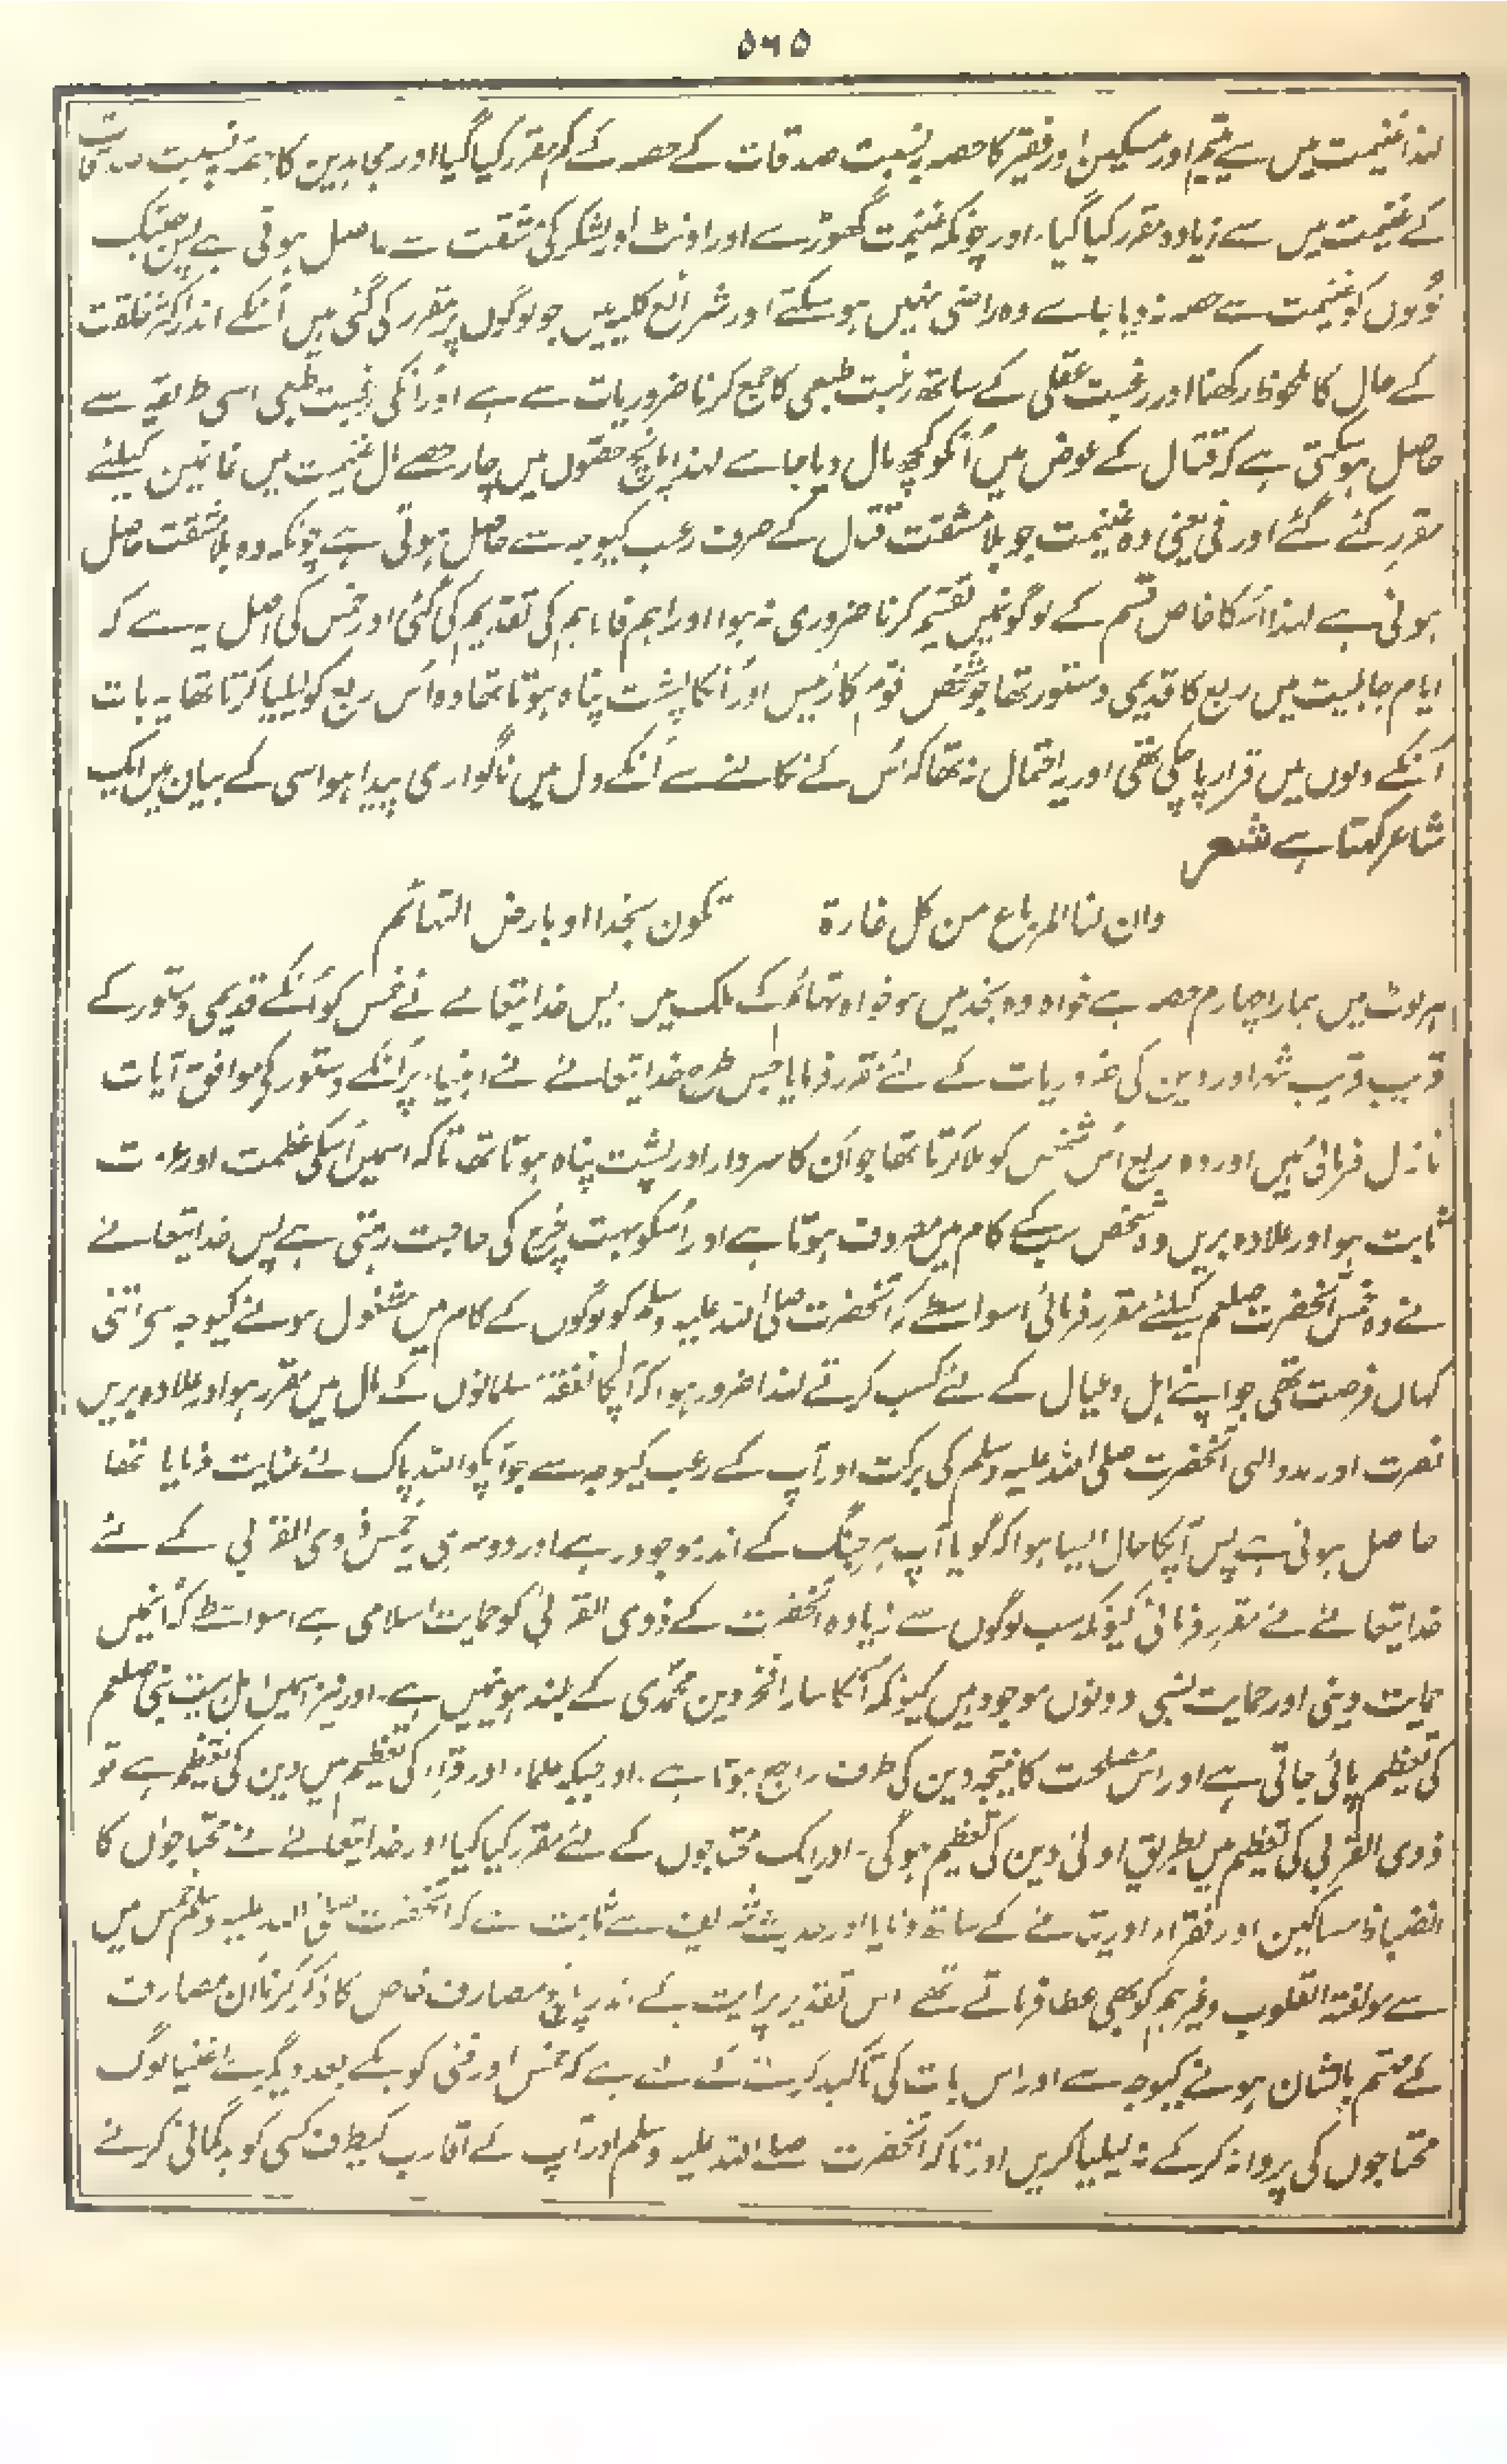 ۵۶۵
لہذا غنیمت میں سے یتیم اور مسکین اور فقیر کا حصہ بہ نسبت صدقات کے حصہ کے کم مقرر کیا گیا اور مجاہدین کا حصہ بہ نسبت صدقات
کے غنیمت میں سے زیادہ مقرر کیا گیا۔ اور چونکہ غنیمت گھوڑے اور اونٹ اور لشکر کی مشقت سے حاصل ہوتی ہے پس جبتک
لوگوں کو غنیمت سے حصہ نہ دیا جاے وہ راضی نہیں ہو سکتے اور شرائع کلیہ میں جو لوگوں پر مقرر کی گئی ہیں اُنکے اندر اکثر خلقت
کے حال کا ملحوظ رکھنا اور رغبت عقلی کے ساتھ رغبت طبعی کا جمع کرنا ضروریات سے ہے اور اُنکی رغبت طبعی اسی طریقہ سے
حاصل ہو سکتی ہے کہ قتال کے عوض میں اُنکو کچھ مال دیا جاے لہذا پانچ حصّوں میں چار حصے مال غنیمت میں غانمین کیلئے
مقرر کئے گئے اور فئی یعنی وہ غنیمت جو بلا مشقت قتال کے صرف رعب کیوجہ سے حاصل ہوتی ہے چونکہ وہ بلا مشقت حاصل
ہوتی ہے لہذا اُسکا خاص قسم کے لوگونمیں تقسیم کرنا ضروری نہ ہوا اور اہم فالاہم کی تقدیم کی گئی اور خمس کی اصل یہ ہے کہ
ایام جاہلیت میں ربع کا قدیمی دستور تھا جو شخص قوم کا رئیس اور اُنکا پشت پناہ ہوتا تھا وہ اُس ربع کو لیلیا کرتا تھا یہ بات
اُنکے دلوں میں قرار پا چکی تھی اور یہ احتمال نہ تھا کہ اُس کے نکالنے سے اُنکے دل میں ناگواری پیدا ہو اسی کے بیان میں ایک
شاعر کہتا ہے شعر
وان لنا المرباع من کل غارة تکون بنجد او بارض التهائم
ہر لوٹ میں ہمارا چہارم حصہ ہے خواہ وہ نجد میں ہو خواہ تہائم کے ملک میں۔ پس خدا یتعالے نے خمس کو اُنکے قدیمی دستور کے
قریب قریب شہر اور دین کی ضروریات کے لئے مقرر فرمایا جس طرح خدا یتعالے نے انبیاء پر اُنکے دستور کے موافق آیات
نازل فرمائی ہیں اور وہ ربع اُس شخص کو ملا کرتا تھا جو اُن کا سردار اور پشت پناہ ہوتا تھا تاکہ اسمیں اُسکی عظمت اور عزت
ثابت ہو اور علاوہ بریں وہ شخص سب کے کام میں مصروف ہوتا ہے اور اُسکو بہت خرچ کی حاجت رہتی ہے پس خدا یتعالے
نے وہ خمس آنحضرت صلعم کیلئے مقرر فرمائی اسواسطے کہ آنحضرت صلی اللہ علیہ وسلم کو لوگوں کے کام میں مشغول ہونے کیوجہ سے اتنی
کہاں فرصت تھی جو اپنے اہل و عیال کے لئے کسب کرتے لہذا ضرور ہوا کہ آپکا نفقہ مسلمانوں کے مال میں مقرر ہو اور علاوہ بریں
نصرت اور مدد الٰہی آنحضرت صلی اللہ علیہ وسلم کی برکت اور آپ کے رعب کیوجہ سے جو آپکو اللہ پاک نے عنایت فرمایا تھا
حاصل ہوئی ہے پس آپکا حال ایسا ہوا کہ گویا آپ ہر جنگ کے اندر موجود رہے اور دوسری یہ خمس ذوی القربیٰ کے لئے
خدا یتعالے نے مقرر فرمائی کیونکہ سب لوگوں سے زیادہ آنحضرت کے ذوی القربیٰ کو حمایت اسلامی ہے اسواسطے کہ اُنمیں
حمایت دینی اور حمایت نسبی دونوں موجود ہیں کیونکہ اُنکا سارا فخر دین محمدی کے بلند ہونیمیں ہے۔ اور نیز اسمیں اہل بیت نبی صلعم
کی تعظیم پائی جاتی ہے اور اس مصلحت کا نتیجہ دین کی طرف راجع ہوتا ہے۔ اور جبکہ علماء اور قراء کی تعظیم میں دین کی تعظیم ہے تو
ذوی القربیٰ کی تعظیم میں بطریق اولیٰ دین کی تعظیم ہو گی۔ اور ایک محتاجوں کے لئے مقرر کیا گیا اور خدا یتعالےٰ نے محتاجوں کا
انضباط مساکین اور فقراء اور یتامےٰ کے ساتھ فرمایا اور حدیث شریف سے ثابت ہے کہ آنحضرت صلی اللہ علیہ وسلم خمس میں
سے مولفۃ القلوب وغیرہم کو بھی عطا فرماتے تھے اس تقدیر پر آیت کے اندر پانچ مصارف خاص کا ذکر کرنا اُن مصارف
کے مہتم بالشان ہونے کیوجہ سے اور اس بات کی تاکید کرنے کے لئے ہے کہ خمس اور فئی کو یکے بعد دیگرے اغنیا لوگ
محتاجوں کی پروا نہ کر کے نہ لیلیا کریں اور تاکہ آنحضرت صلے اللہ علیہ وسلم اور آپ کے اقارب کیطرف کسی کو بدگمانی کرنے